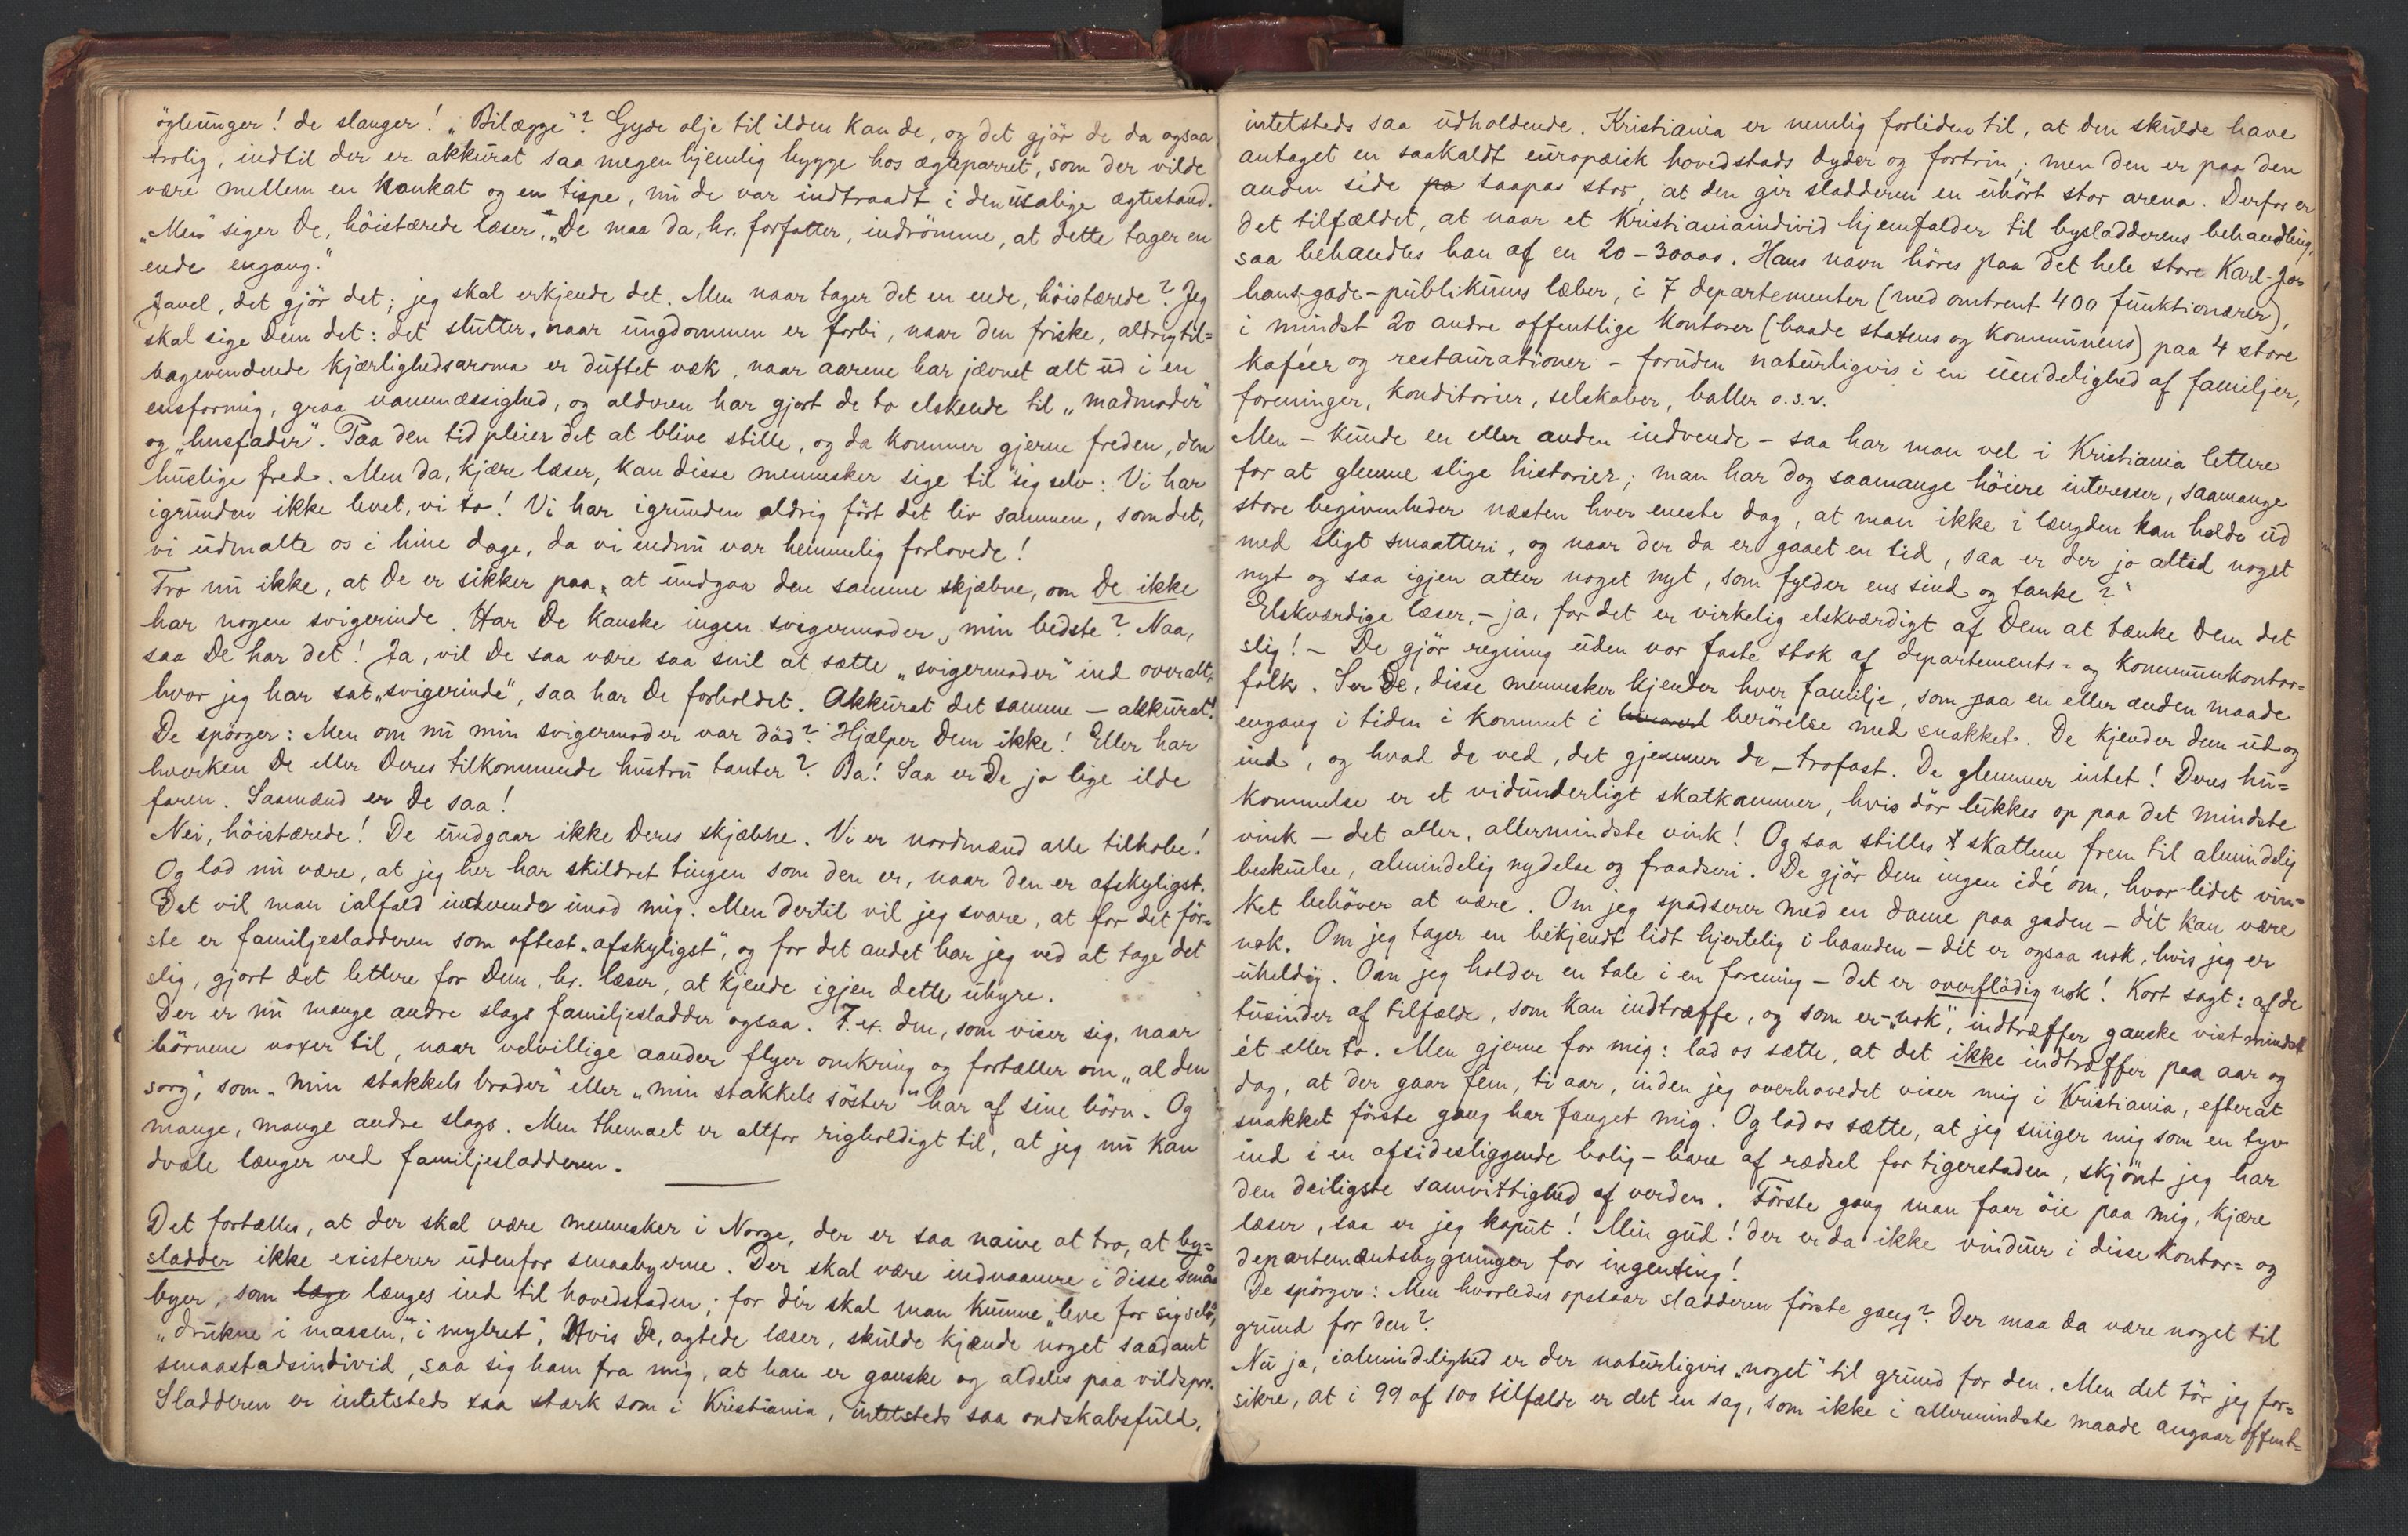 øgleunger! de slanger! „Bilægge"? Gyde olje til ilden kan de, og det gjör de da ogsaa
trolig, indtil der er akkurat saa megen hjemlig hygge hos ægteparret, som der vilde
være mellem en hankat og en tispe, nu de var indtraadt i den usalige ægtestand.
„Men" siger De, höistærede læser, „De maa da, hr. forfatter, indrömme, at dette tager en
ende engang."
Javel, det gjör det; jeg skal erkjende det. Men naar tager det en ende, höistærede? Jeg
skal sige Dem det: det slutter, naar ungdommen er forbi, naar den friske, aldrig til=
bagevendende kjærlighedsaroma er duftet væk, naar aarene har jævnet alt ud i en
ensformig, graa vanemæssighed, og alderen har gjort de to elskende til „madmoder"
og „husfader". Paa den tid pleier det at blive stille, og da kommer gjerne freden, den
huslige fred. Men da, kjære læser, kan disse mennesker sige til sig selv: Vi har
igrunden ikke levet, vi to! Vi har igrunden aldrig fört det liv sammen, som det,
vi udmalte os i hine dage, da vi endnu var hemmelig forlovede!
Tro nu ikke, at De er sikker paa, at undgaa den samme skjæbne, om De ikke
har nogen svigerinde. Har De kanske ingen svigermoder, min bedste? Naa,
saa De har det! Ja, vil De saa være saa snil at sætte „svigermoder" ind overalt,
hvor jeg har sat „svigerinde", saa har De forholdet. Akkurat det samme – akkurat!
De spörger: Men om nu min svigermoder var död? Hjælper Dem ikke! Eller har
hverken De eller Deres tilkommende hustru tanter? Ba! Saa er De jo lige ilde
faren. Saamænd er De saa!
Nei, höistærede! De undgaar ikke Deres skjæbne. Vi er nordmænd alle tilhobe!
Og lad nu være, at jeg her har skildret tingen som den er, naar den er afskyligst.
Det vil man ialfald indvende imod mig. Men dertil vil jeg svare, at for det för=
ste er familjesladderen som oftest „afskyligst", og for det andet har jeg ved at tage det
slig, gjort det lettere for Dem, hr. læser, at kjende igjen dette uhyre.
Der er nu mange andre slags familjesladder ogsaa. F. ex. den, som viser sig, naar
börnene voxer til, naar velvillige aander flyer omkring og fortæller om „al den
sorg", som „min stakkels broder" eller „min stakkels söster" har af sine börn. Og
mange, mange andre slags. Men themaet er altfor righoldigt til, at jeg nu kan
dvæle længer ved familjesladderen.
Det fortælles, at der skal være mennesker i Norge, der er saa naive at tro, at by=
sladder ikke existerer udenfor smaabyerne. Der skal være indvaanere i disse små
byer, som læge længes ind til hovedstaden; for dér skal man kunne „leve for sig selv",
„drukne i massen", „i mylret". Hvis De, agtede læser, skulde kjænde noget saadant
smaastadsindivid, saa sig ham fra mig, at han er ganske og aldeles paa vildspor.
Sladderen er intetsteds saa stærk som i Kristiania, intetsteds saa ondskabsfuld,
intetsteds saa udholdende. Kristiania er nemlig forliden til, at den skulde have
antaget en saakaldt europæisk hovedstads dyder og fortrin; men den er paa den
anden side pa saapas stor, at den gir sladderen en uhört stor arena. Derfor er
det tilfældet, at naar et Kristianiaindivid hjemfalder til bysladderens behandling,
saa behandles han af en 20-30000. Hans navn höres paa det hele store Karl-Jo=
hans-gade-publikums læber, i 7 departementer (med omtrent 400 funktionærer),
i mindst 20 andre offentlige kontorer (baade statens og kommunens) paa 4 store
kaféer og restaurationer – foruden naturligvis i en uendelighed af familjer,
foreninger, konditorier, selskaber, baller o.s.v.
Men – kunde en eller anden indvende – saa har man vel i Kristiania lettere
for at glemme slige historier; man har dog saamange höiere interesser, saamange
store begivenheder næsten hver eneste dag, at man ikke i længden kan holde ud
med sligt smaatteri, og naar der da er gaaet en tid, saa er der jo altid noget
nyt og saa igjen atter noget nyt, som fylder ens sind og tanke?"
Elskværdige læser, – ja, for det er virkelig elskværdigt af Dem at tænke Dem det
slig! – De gjör regning uden vor faste stok af departements= og kommunekontor=
folk. Ser De, disse mennesker kjender hver familje, som paa en eller anden maade
engang i tiden i kommet i berörelse med snakket. De kjender dem ud og
ind, og hvad de ved, det gjemmer de – trofast. De glemmer intet! Deres hu=
kommelse er et vidunderligt skatkammer, hvis dör lukkes op paa det mindste
vink – det aller, allermindste vink! Og saa stilles skattene frem til almindelig
beskuelse, almindelig nydelse og fraadseri. De gjör Dem ingen idé om, hvor lidet vin=
ket behöver at være. Om jeg spadserer med en dame paa gaden – dét kan være
nok. Om jeg tager en bekjendt lidt hjertelig i haanden – dét er ogsaa nok, hvis jeg er
uheldig. Om jeg holder en tale i en forening – det er overflödig nok! Kort sagt: af de
tusinder af tilfælde, som kan indtræffe, og som er „nok", indtræffer ganske vist mindst
ét eller to. Men gjerne for mig: lad os sætte, at det ikke indtræffer paa aar og
dag, at der gaar fem, ti aar, inden jeg overhovedet viser mig i Kristiania, efterat
snakket förste gang har fanget mig. Og lad os sætte, at jeg sniger mig som en tyv
ind i en afsidesliggende bolig – bare af rædsel for tigerstaden, skjönt jeg har
den deiligste samvittighed af verden. Förste gang man faar öie paa mig, kjære
læser, saa er jeg kaput! Min gud! der er da ikke vinduer i disse kontor= og
departementsbygninger for ingenting!
De spörger: Men hvorledes opstaar sladderen förste gang? Der maa da være noget til
grund for den?
Nu ja, ialmindelighed er der naturligvis „noget" til grund for den. Men det tör jeg for=
sikre, at i 99 af 100 tilfælde er det en sag, som ikke i allermindste maade angaar offent=